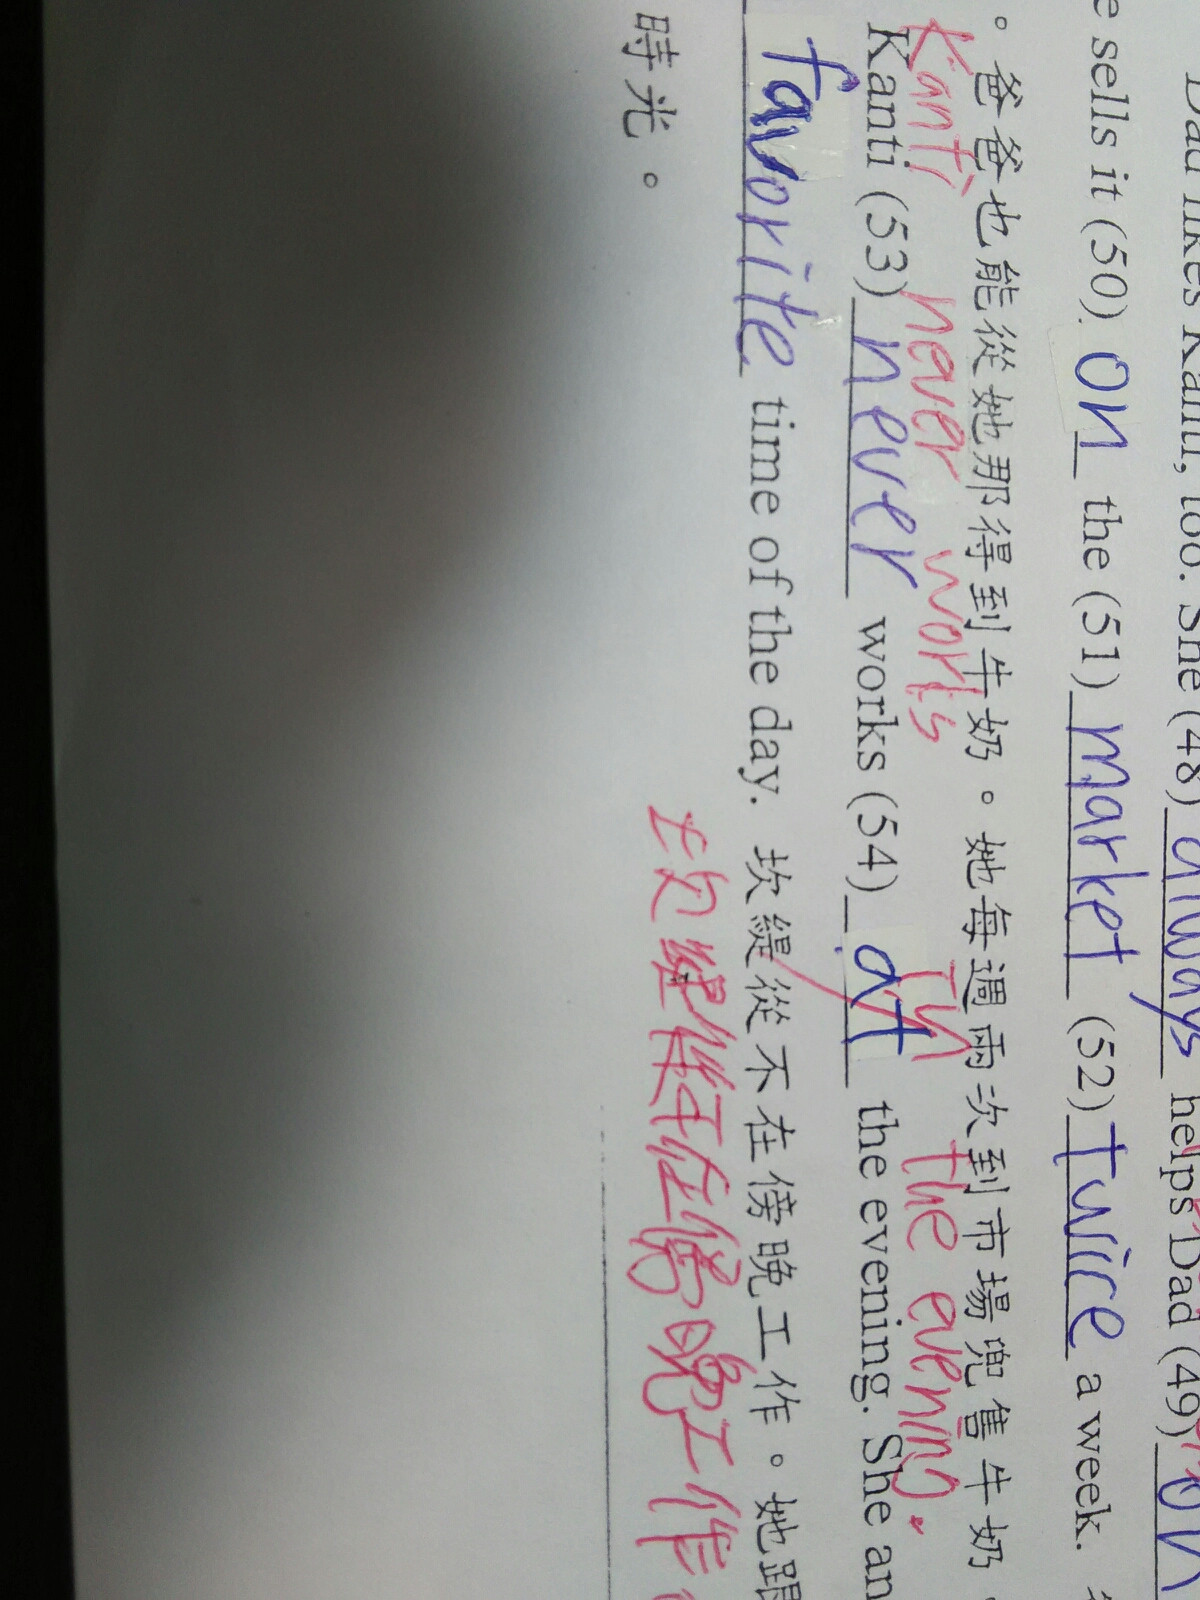 Dad likes Kanti, too. She (48) always helps Dad (49) on
e sells it (50) on the (51) market (52) twice a week.
。爸爸也能從她那得到牛奶。她每週兩次到市場兜售牛奶。
Kanti never works in the evening.
Kanti (53) never works (54) at the evening. She an
favorite time of the day. 坎緹從不在傍晚工作。她跟
坎緹從不在傍晚工作
時光。